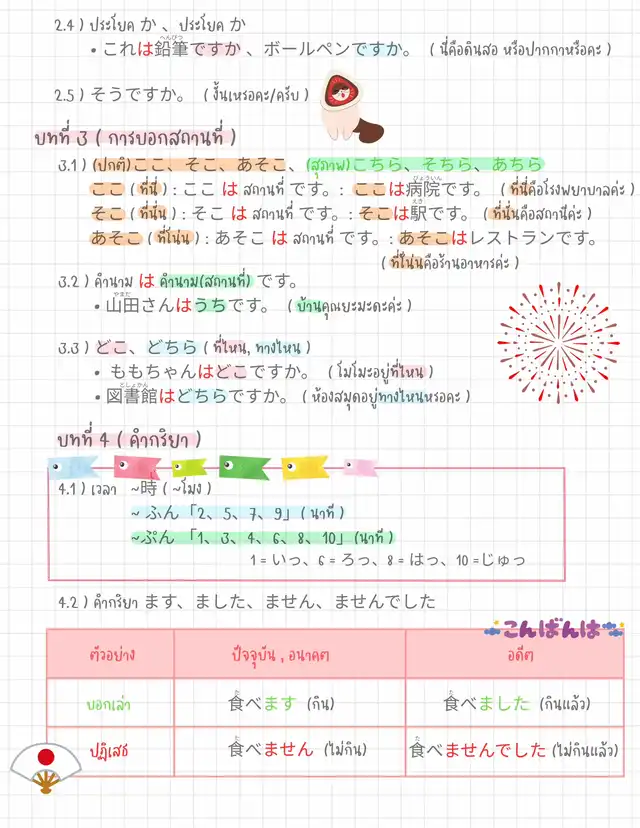 2.4 ) ประโยค か 、ประโยค か
• これは鉛筆ですか 、ボールペンですか。 ( นี่คือดินสอ หรือปากกาหรือคะ )
えんぴつ
2.5 ) そうですか。 ( งั้นเหรอคะ/ครับ )
บทที่ 3 ( การบอกสถานที่ )
3.1 ) (ปกติ)ここ、そこ、あそこ、(สุภาพ)こちら、そちら、あちら
びょういん
ここ ( ที่นี่ ) : ここ は สถานที่ です。: ここは病院です。 ( ที่นี่คือโรงพยาบาลค่ะ )
えき
そこ ( ที่นั่น ) : そこ は สถานที่ です。: そこは駅です。 ( ที่นั่นคือสถานีค่ะ )
あそこ ( ที่โน่น ) : あそこ は สถานที่ です。: あそこはレストランです。
( ที่โน่นคือร้านอาหารค่ะ )
3.2 ) คำนาม は คำนาม(สถานที่) です。
やまだ
• 山田さんはうちです。 ( บ้านคุณยะมะดะค่ะ )
3.3 ) どこ、どちら ( ที่ไหน, ทางไหน )
• ももちゃんはどこですか。 ( โมโมะอยู่ที่ไหน )
としょかん
• 図書館はどちらですか。 ( ห้องสมุดอยู่ทางไหนหรอคะ )
บทที่ 4 ( คำกริยา )
4.1 ) เวลา ~時 ( ~โมง )
~ ふん「2、5、7、9」( นาที )
~ぷん 「1、3、4、6、8、10」(นาที )
1 = いっ、6 = ろっ、8 = はっ、10 =じゅっ
4.2 ) คำกริยา ます、ました、ません、ませんでした
こんばんは
ตัวอย่าง ปัจจุบัน , อนาคต อดีต
บอกเล่า 食べます (กิน) 食べました (กินแล้ว)
た た
ปฏิเสธ 食べません (ไม่กิน) 食べませんでした (ไม่กินแล้ว)
た た